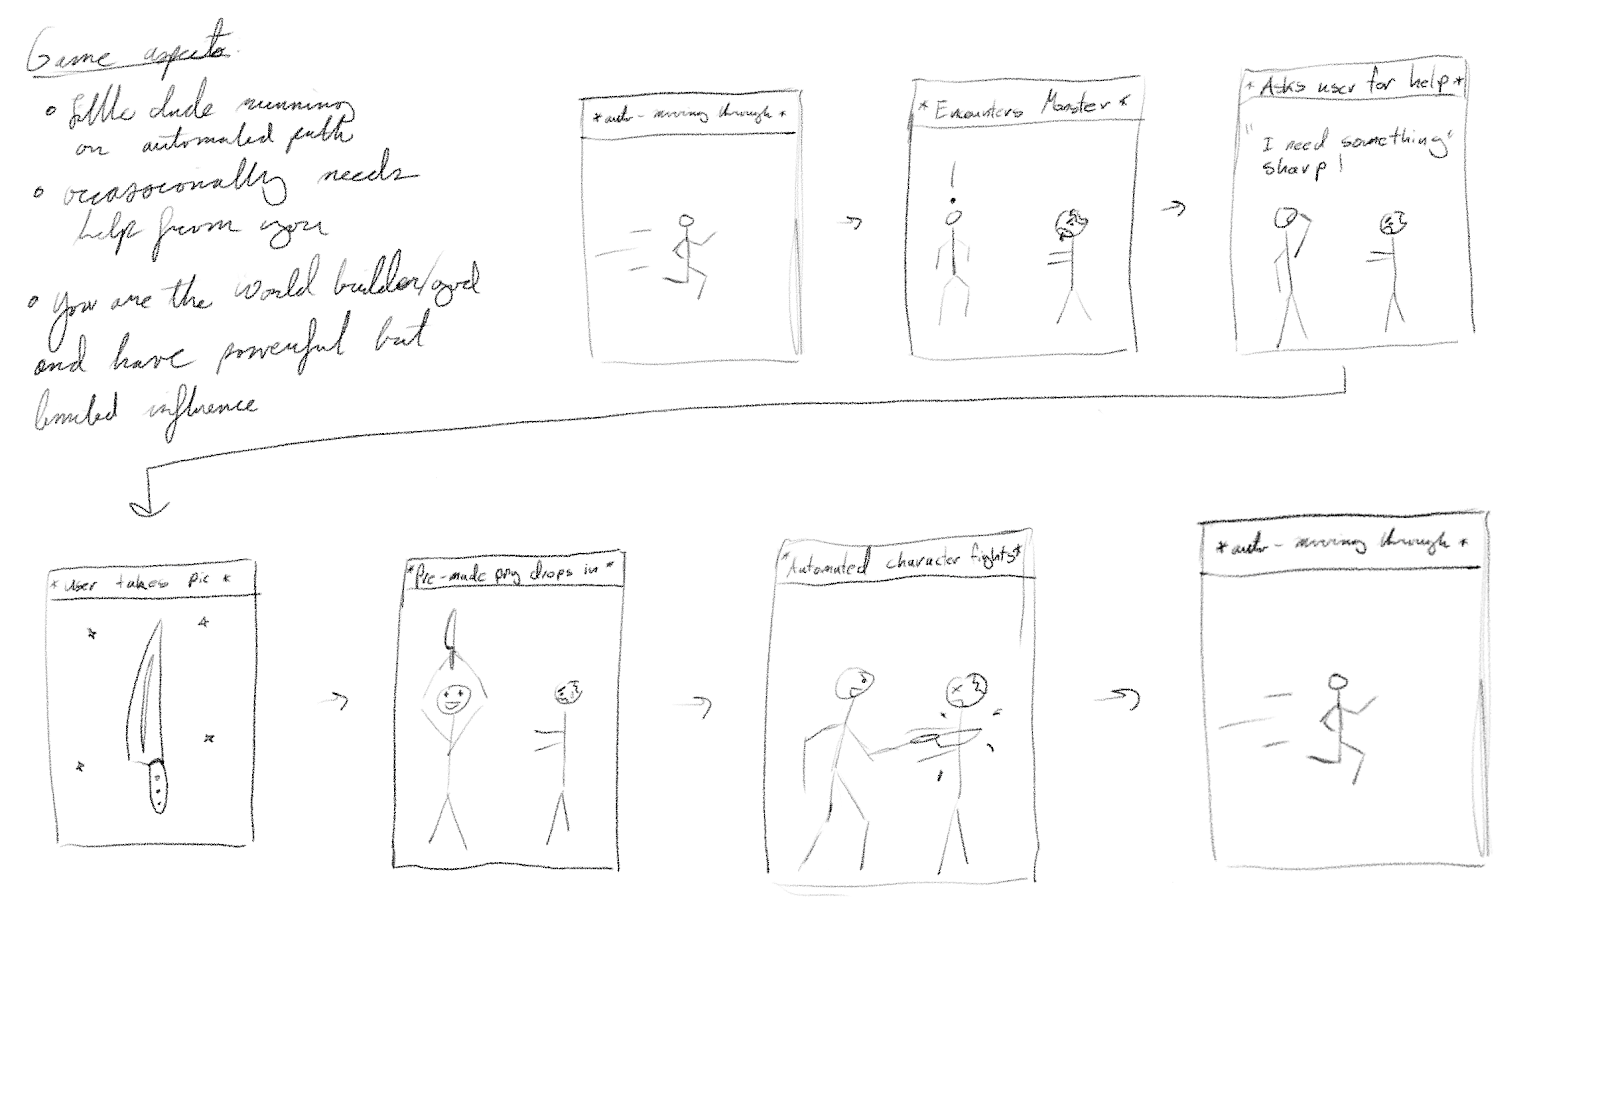 Game aspects
• little dude running
on automated path
• occasionally needs
help from you
• You are the world builder/god
and have powerful but
limited influence
*auto-moving through*
*Encounters Monster*
!
*Asks user for help*
"I need something
sharp!"
*User takes pic*
*Pre-made png drops in*
*Automated character fights*
*auto-moving through*